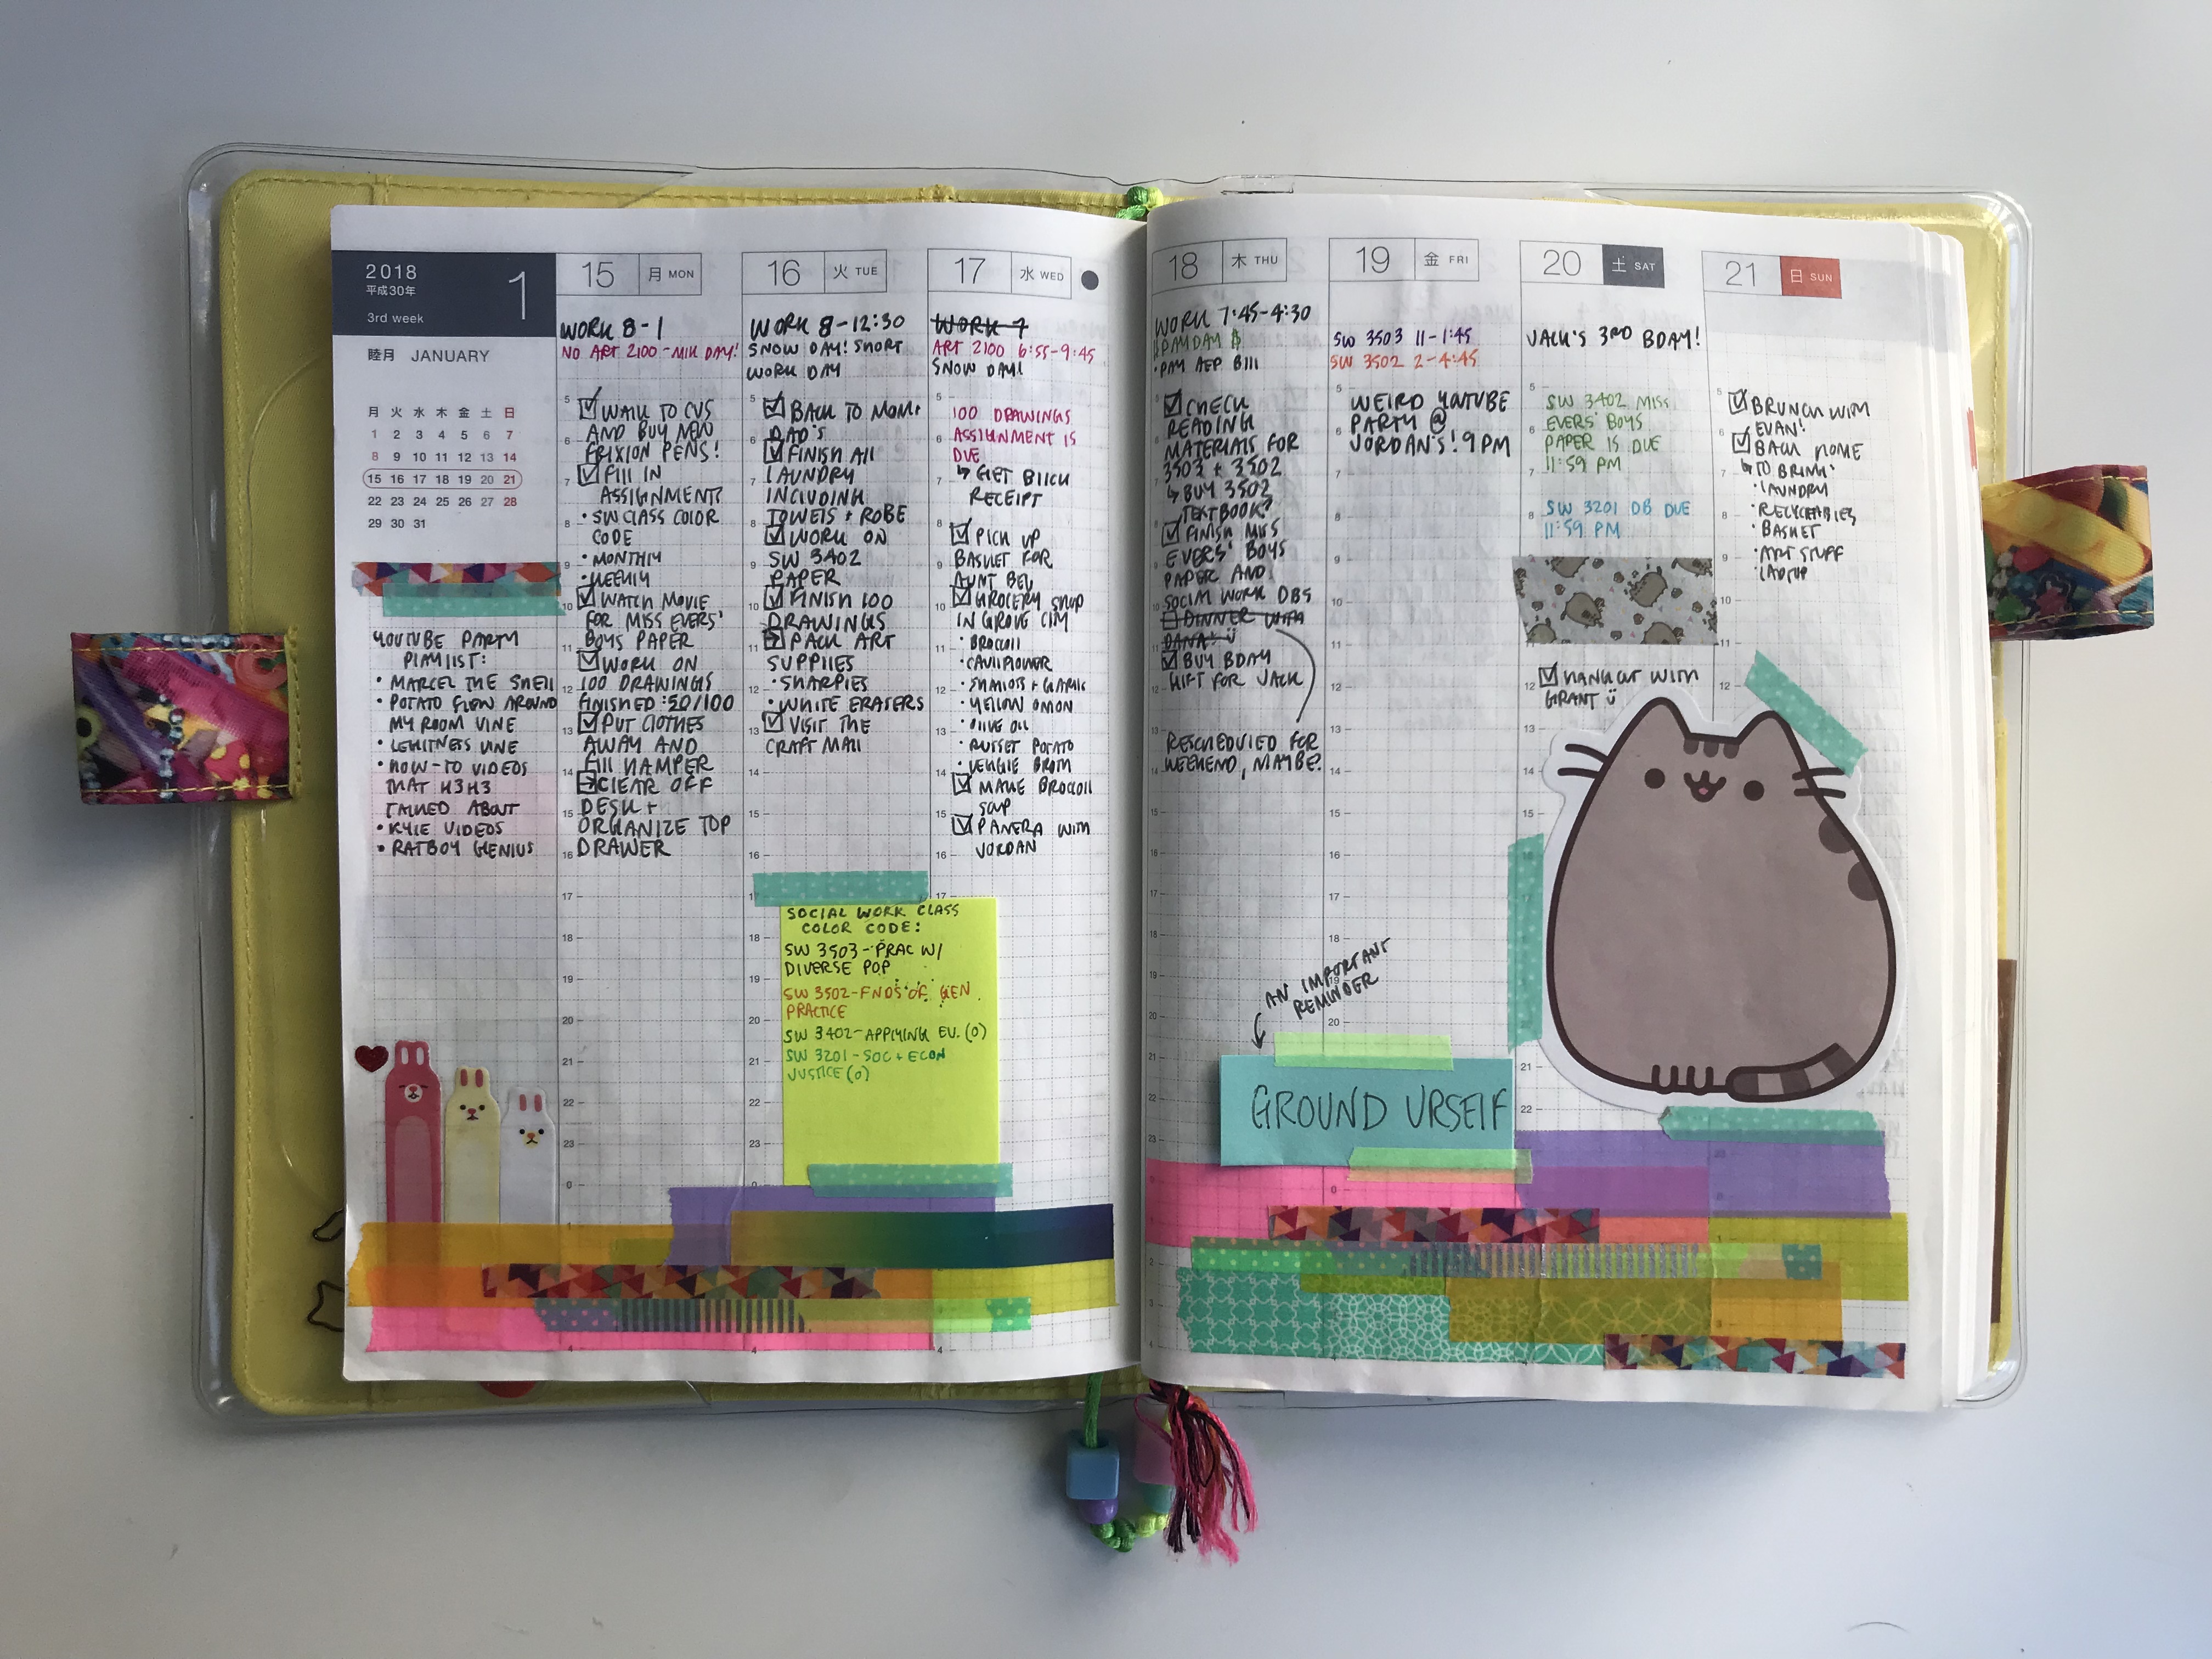 2018
平成30年
1
3rd week
睦月 JANUARY
月 火 水 木 金 土 日
1 2 3 4 5 6 7
8 9 10 11 12 13 14
15 16 17 18 19 20 21
22 23 24 25 26 27 28
29 30 31
YOUTUBE PARTY
PLAYLIST:
• MARCEL THE SHELL
• POTATO FLEW AROUND
MY ROOM VINE
• LEHITNESS VINE
• HOW-TO VIDEOS
THAT H3H3
TALKED ABOUT
• KYLE VIDEOS
• RATBOY GENIUS
15 月 MON
WORK 8-1
NO ART 2100-MLK DAY!
WALK TO CVS
AND BUY NEW
FRIXION PENS!
FILL IN
ASSIGNMENTS
• SW CLASS COLOR
CODE
• MONTHLY
• WEEKLY
WATCH MOVIE
FOR MISS EVERS'
BOYS PAPER
WORK ON
100 DRAWINGS
FINISHED: 50/100
PUT CLOTHES
AWAY AND
FILL HAMPER
CLEAR OFF
DESK +
ORGANIZE TOP
DRAWER
16 火 TUE
WORK 8-12:30
SNOW DAY! SHORT
WORK DAY
BACK TO MOM+
DAD'S
FINISH ALL
LAUNDRY
INCLUDING
TOWELS + ROBE
WORK ON
SW 3402
PAPER
FINISH 100
DRAWINGS
PACK ART
SUPPLIES
• SHARPIES
• WHITE ERASERS
VISIT THE
CRAFT MALL
SOCIAL WORK CLASS
COLOR CODE:
SW 3503-PRAC W/
DIVERSE POP
SW 3502-FNDS OF GEN
PRACTICE
SW 3402-APPLYING EV. (O)
SW 3201-SOC + ECON
JUSTICE (O)
17 水 WED
WORK 7
ART 2100 6:55-9:45
SNOW DAY!
100 DRAWINGS
ASSIGNMENT IS
DUE
↳ GET BLICK
RECEIPT
PICK UP
BASKET FOR
AUNT BEV
GROCERY SHOP
IN GROVE CITY
• BROCCOLI
• CAULIFLOWER
• SHALLOTS + GARLIC
• YELLOW ONION
• OLIVE OIL
• RUSSET POTATO
• VEGGIE BROTH
MAKE BROCCOLI
SOUP
PANERA WITH
JORDAN
18 木 THU
WORK 7:45-4:30
PAYDAY $
• PAY AEP BILL
CHECK
READING
MATERIALS FOR
3503 + 3502
↳ BUY 3502
TEXTBOOK?
FINISH MISS
EVERS' BOYS
PAPER AND
SOCIAL WORK DBS
DINNER WITH
DANA!
BUY BDAY
GIFT FOR JACK
RESCHEDULED FOR
WEEKEND, MAYBE?
AN IMPORTANT
REMINDER
GROUND URSELF
19 金 FRI
SW 3503 11-1:45
SW 3502 2-4:45
WEIRD YOUTUBE
PARTY @
JORDAN'S! 9 PM
20 土 SAT
JACK'S 3RD BDAY!
SW 3402 MISS
EVERS' BOYS
PAPER IS DUE
11:59 PM
SW 3201 DB DUE
11:59 PM
HANG OUT WITH
GRANT
21 日 SUN
BRUNCH WITH
EVAN!
BACK HOME
↳ TO BRING:
• LAUNDRY
• RECYCLABLES
• BASKET
• ART STUFF
• LAPTOP